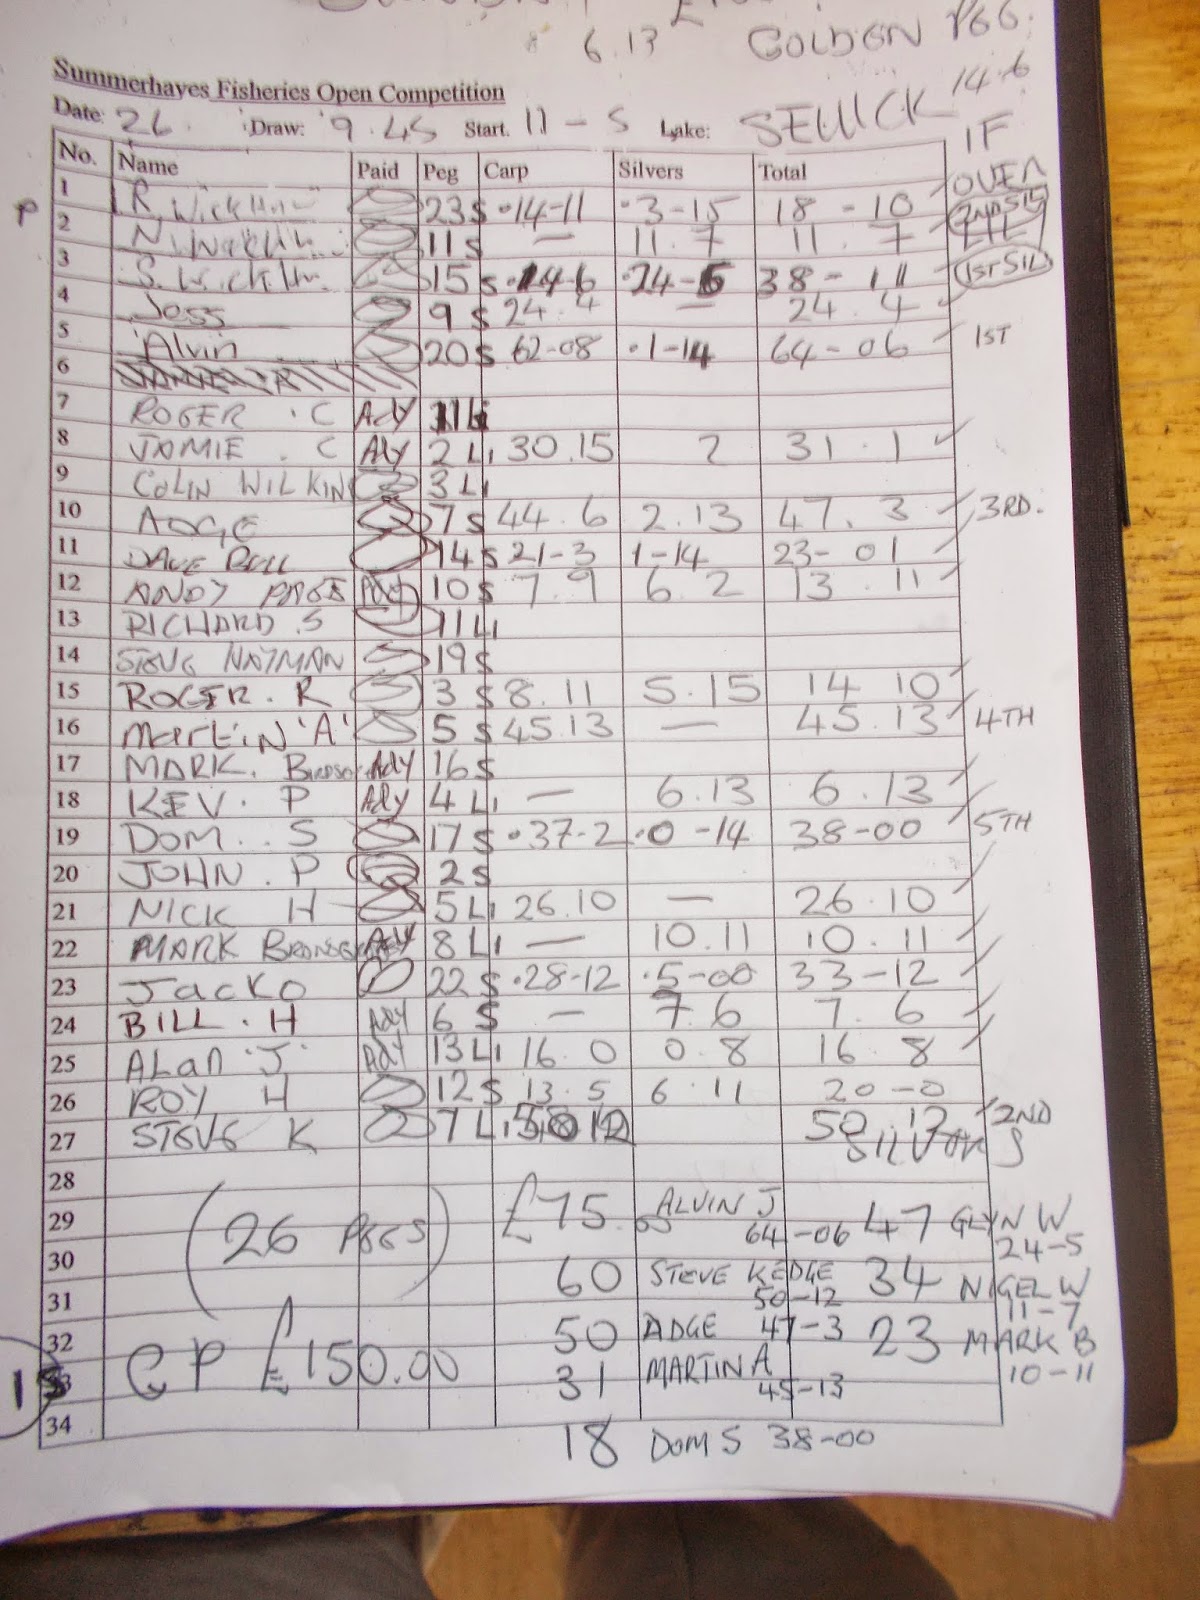 6.13 GOLDEN PEG.
Summerhayes Fisheries Open Competition 14-6
Date: 26. Draw: 9.45 Start. 11-5 Lake: SELWICK IF
No. Name Paid Peg Carp Silvers Total OVER
P 1 R. Wickham 23 S 14-11 3-15 18-10
2 N. Wickham 11 S — 11.7 11.7 2ND SIL
3 S. Wickham 15 S 14-6 24-5 38-11 1ST SIL
4 Joss 9 S 24.4 — 24.4
5 Alvin 20 S 62-08 1-14 64-06 1ST
6
7 ROGER . C Ady
8 JAMIE . C Ady 2 Li 30.15 2 31.1
9 COLIN WILKIN 3 Li
10 ADGE 7 S 44.6 2.13 47.3 3RD.
11 DAVE BULL 14 S 21-3 1-14 23-01
12 ANDY PAGE 10 S 7.9 6.2 13.11
13 RICHARD . S 11 Li
14 STEVE NAYMAN 19 S
15 ROGER . R 3 S 8.11 5.15 14 10
16 MARTIN 'A' 5 S 45.13 — 45.13 4TH
17 MARK. Ady 16 S
18 KEV. P Ady 4 Li — 6.13 6.13
19 DOM . . S 17 S 37-2 0-14 38-00 5TH
20 JOHN . P 2 S
21 NICK H 5 Li 26.10 — 26.10
22 MARK Ady 8 Li — 10.11 10.11
23 Jacko 22 S 28-12 5-00 33-12
24 BILL . H Ady 6 S — 7.6 7.6
25 ALAN 'J' Ady 13 Li 16.0 0.8 16.8
26 ROY H 12 S 13.5 6.11 20-0
27 STEVE K 7 Li 50 12 50.12 2ND
28 SILVERS
29 (26 PEGS) £75.00 ALVIN J 64-06 47 GLYN W 24-5
30 60 STEVE KEDGE 50-12 34 NIGEL W 11-7
31
32 50 ADGE 47-3 23 MARK B 10-11
33 GP £150.00 31 MARTIN A 45-13
34
18 DOM S 38-00